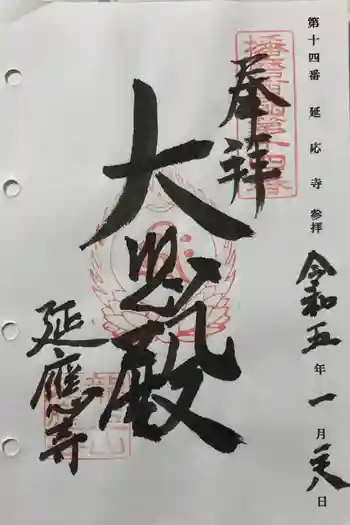 第十四番 延応寺 参拝
令和五年一月二八日
奉拝
大悲殿
延應寺